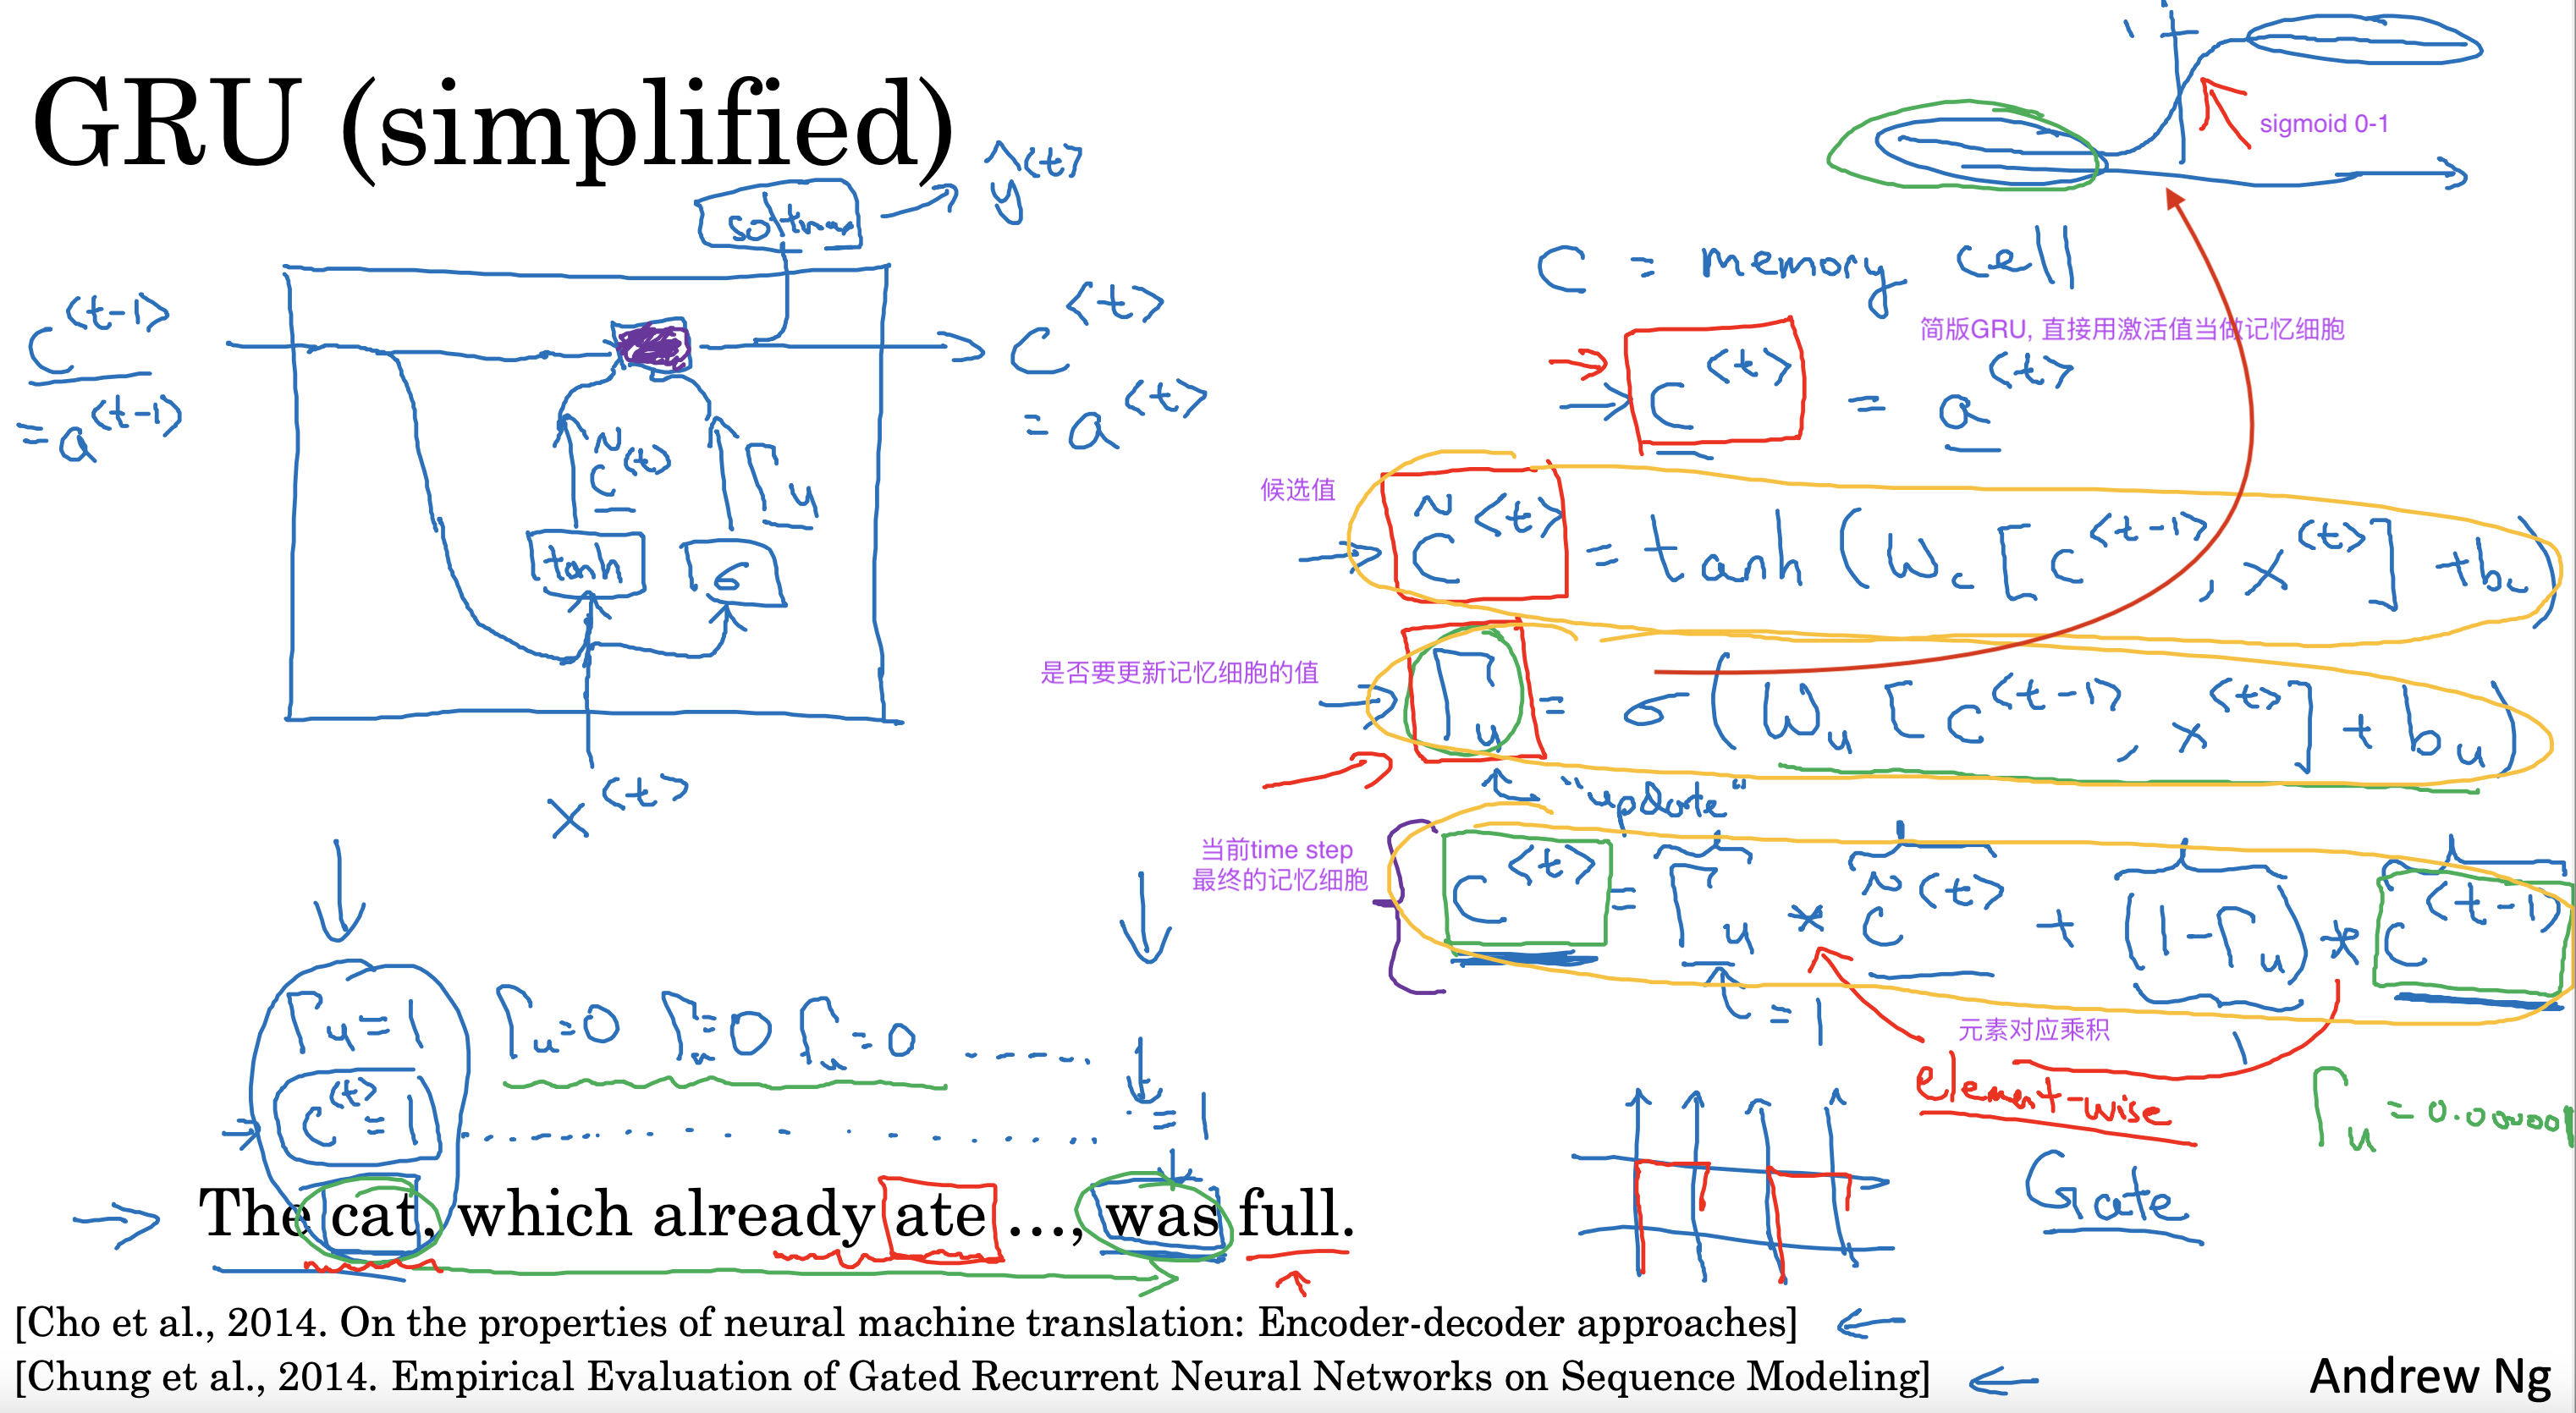 GRU (simplified)
softmax
ŷ<t>
sigmoid 0-1
c<t-1>
= a<t-1>
c<t>
= a<t>
c̃<t>
Γu
tanh
σ
x<t>
C = memory cell
简版GRU, 直接用激活值当做记忆细胞
c<t> = a<t>
候选值
c̃<t> = tanh (Wc [c<t-1>, x<t>] + bc)
是否要更新记忆细胞的值
Γu = σ (Wu [c<t-1>, x<t>] + bu)
"update"
当前time step
最终的记忆细胞
c<t> = Γu * c̃<t> + (1-Γu) * c<t-1>
= 1
元素对应乘积
element-wise
Γu = 0.000001
Gate
Γu=1 Γu=0 Γu=0 Γu=0 ......
c<t>=1 ...... = 1
The cat, which already ate ..., was full.
[Cho et al., 2014. On the properties of neural machine translation: Encoder-decoder approaches]
[Chung et al., 2014. Empirical Evaluation of Gated Recurrent Neural Networks on Sequence Modeling]
Andrew Ng